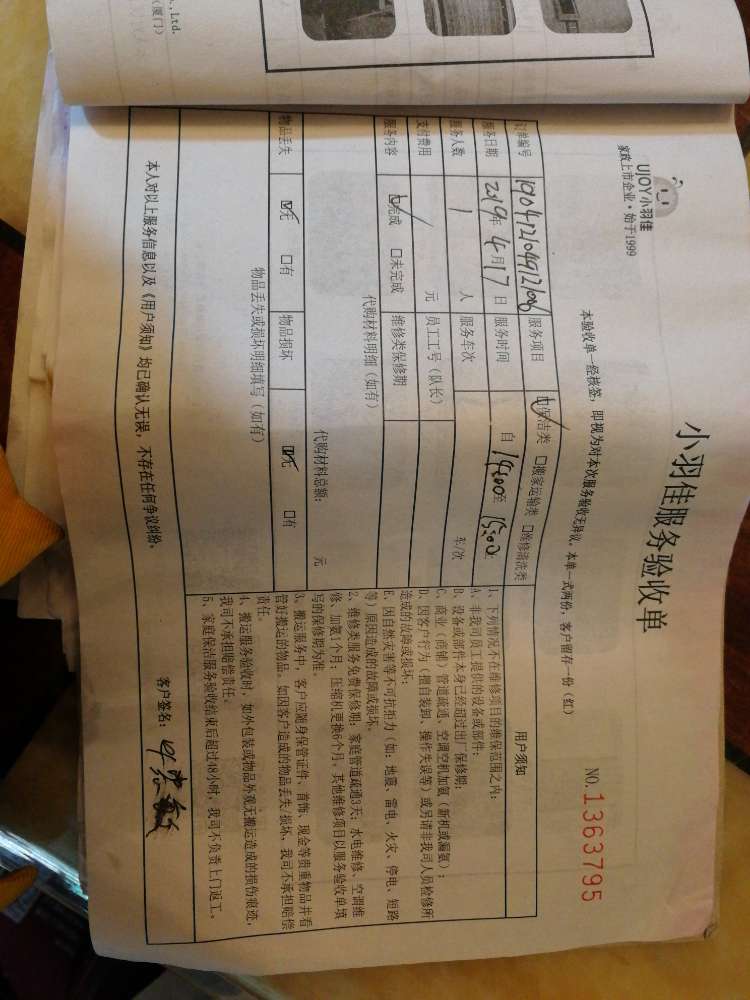 ., Ltd.
(厦门)
UJOY小羽佳
家政上市企业·始于1999
小羽佳服务验收单
NO.1363795
本验收单一经核签，即视为对本次服务验收无异议。本单一式两份，客户留存一份（红）
订单编号 服务项目 保洁类 搬家运输类 维修清洗类
服务日期 2019年4月17日 服务时间 自 14:00 至 15:00
服务人数 1 人 服务车次 车/次
支付费用 元 员工工号（队长）
服务内容 完成 未完成 维修类保修期
代购材料明细（如有）
代购材料总额： 元
物品丢失 无 有 物品损坏 无 有
物品丢失或损坏明细填写（如有）
用户须知
1、下列情况不在维修项目的维保范围之内：
A、非我司员工提供的设备或部件；
B、设备或部件本身已经超过出厂保修期；
C、商业（商铺）管道疏通、空调空机加氨（新机或漏氨）；
D、因客户行为（擅自装卸、操作失误等）或另请非我司人员检修所
造成的故障或损坏；
E、因自然灾害等不可抗拒力（如：地震、雷电、火灾、停电、短路
等）原因造成的故障或损坏。
2、维修类服务免费保修期：家庭管道疏通3天；水电维修、空调维
修、加氨1个月；压缩机更换6个月，其他维修项目以服务验收单填
写的保修期为准。
3、搬运服务中，客户应随身保管证件、首饰、现金等贵重物品并看
管好搬运的物品。如因客户造成的物品丢失、损坏，我司不承担赔偿
责任。
4、搬运服务验收时，如外包装或物品外观无搬运造成的损伤痕迹，
我司不承担赔偿责任。
5、家庭保洁服务验收结束后超过48小时，我司不负责上门返工。
本人对以上服务信息以及《用户须知》均已确认无误，不存在任何争议纠纷。
客户签名：